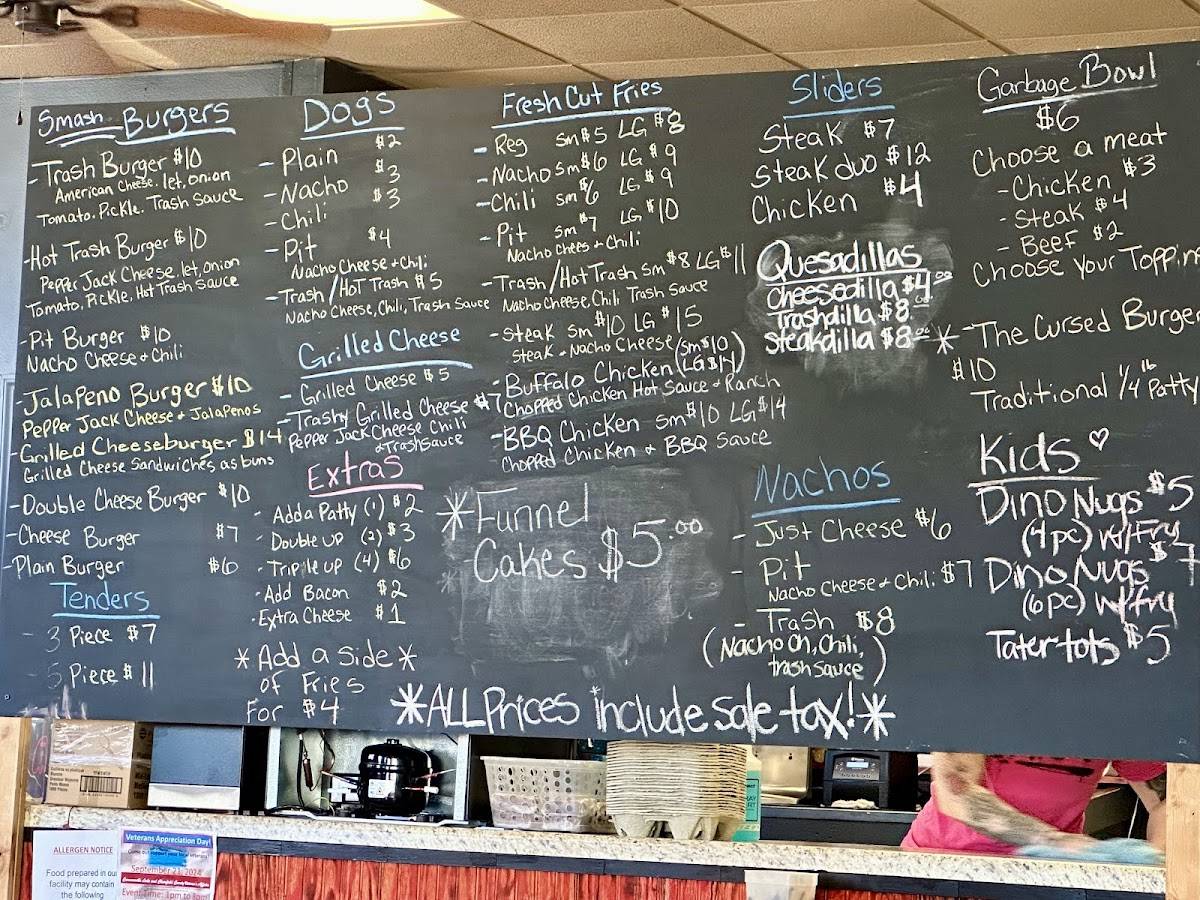 Smash Burgers
- Trash Burger $10
American Cheese. let, onion
Tomato. Pickle. Trash Sauce
- Hot Trash Burger $10
Pepper Jack Cheese. let, onion
Tomato. Pickle. Hot Trash Sauce
- Pit Burger $10
Nacho Cheese + Chili
- Jalapeno Burger $10
Pepper Jack Cheese + Jalapenos
- Grilled Cheeseburger $14
Grilled Cheese Sandwiches as buns
- Double Cheese Burger $10
- Cheese Burger $7
- Plain Burger $6
Tenders
- 3 Piece $7
- 5 Piece $11
Dogs
- Plain $2
- Nacho $3
- Chili $3
- Pit $4
Nacho Cheese + Chili
- Trash/Hot Trash $5
Nacho Cheese, Chili, Trash Sauce
Grilled Cheese
- Grilled Cheese $5
- Trashy Grilled Cheese $7
Pepper Jack Cheese Chili
+ Trash Sauce
Extras
- Add a Patty (1) $2
- Double up (2) $3
- Triple up (4) $6
- Add Bacon $2
- Extra Cheese $1
*Add a side*
of Fries
For $4
Fresh Cut Fries
- Reg sm $5 LG $8
- Nacho sm $6 LG $9
- Chili sm $6 LG $9
- Pit sm $7 LG $10
Nacho Chees + Chili
- Trash/Hot Trash sm $8 LG $11
Nacho Cheese, Chili Trash Sauce
- Steak sm $10 LG $15
Steak + Nacho Cheese
- Buffalo Chicken (sm $10)
(LG $14)
Chopped Chicken Hot Sauce + Ranch
- BBQ Chicken sm $10 LG $14
Chopped Chicken + BBQ Sauce
*Funnel
Cakes $5.00
Sliders
Steak $7
Steak duo $12
Chicken $4
Quesadillas
cheesadilla $4.00
Trashdilla $8.00
steakdilla $8.00
Nachos
- Just Cheese $6
- Pit
Nacho Cheese + Chili $7
- Trash $8
(Nacho Ch, Chili,
trash sauce)
Garbage Bowl
$6
Choose a meat
- Chicken $3
- Steak $4
- Beef $2
Choose Your
* - The Cursed Burger
$10
Traditional 1/4 lb Patty
Kids ♡
Dino Nugs $5
(4pc) w/Fry
Dino Nugs $7
(6pc) w/fry
Tater tots $5
*ALL Prices include sale tax!*
ALLERGEN NOTICE
Food prepared in our
facility may contain
the following
Veterans Appreciation Day!
September 21, 2024
Event Time: 1pm to 8pm